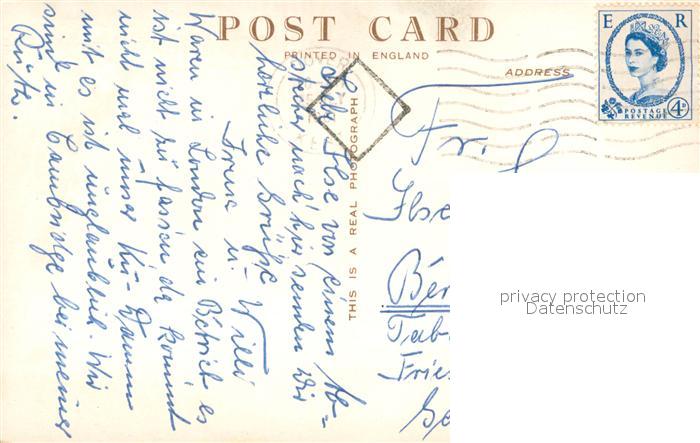 POST CARD
PRINTED IN ENGLAND
ADDRESS
E R
POSTAGE
REVENUE
4D
THIS IS A REAL PHOTOGRAPH
Liebe Ilse von einem Ab-
stecher nach hier senden Dir
herzliche Grüße
u. Willi
Waren in London ein Betrieb es
ist nicht zu fassen da kommt
nicht mal unser Ku-Damm
mit es ist unglaublich. Wir
sind in Cambridge bei meiner
Fr.
Ilse
Ber
Tab
Fries
Ge
privacy protection
Datenschutz